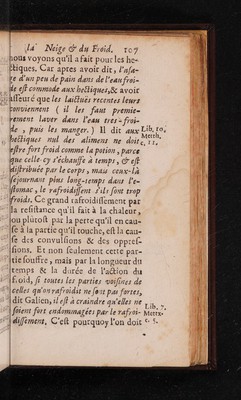 la Neige & du Froid. 107
nous voyons qu'il a fait pour les he-
ctiques. Car apres avoir dit, l'usa-
ge d'un peu de pain dans de l'eau froi-
de est commode aux hectiques, & avoir
asseuré que les laictuës recentes leurs
conviennent (il les faut premie-
rement laver dans l'eau tres-froi-
de, puis les manger.) Il dit aux
hectiques nul des alimens ne doit
estre fort froid comme la potion, parce
que celle-cy s'échauffe à temps, & est
distribuée par le corps, mais ceux-là
sejournant plus long-temps dans l'e-
stomac, le rafroidissent s'ils sont trop
froids. Ce grand rafroidissement par
la resistance qu'il fait à la chaleur,
ou plûtost par la perte qu'il en cau-
se à la partie qu'il touche, est la cau-
se des convulsions & des oppres-
sions. Et non seulement cette par-
tie souffre, mais par la longueur du
temps & la durée de l'action du
froid, si toutes les parties voisines de
celles qu'on rafroidit ne sont pas fortes,
dit Galien, il est à craindre qu'elles ne
soient fort endommagées par le rafroi-
dissement. C'est pourquoy l'on doit
Lib. 10.
Meth.
11.
Lib. 7.
Meth.
c. 5.